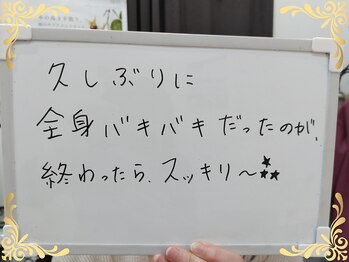 久しぶりに
全身バキバキだったのが、
終わったら、スッキリ〜